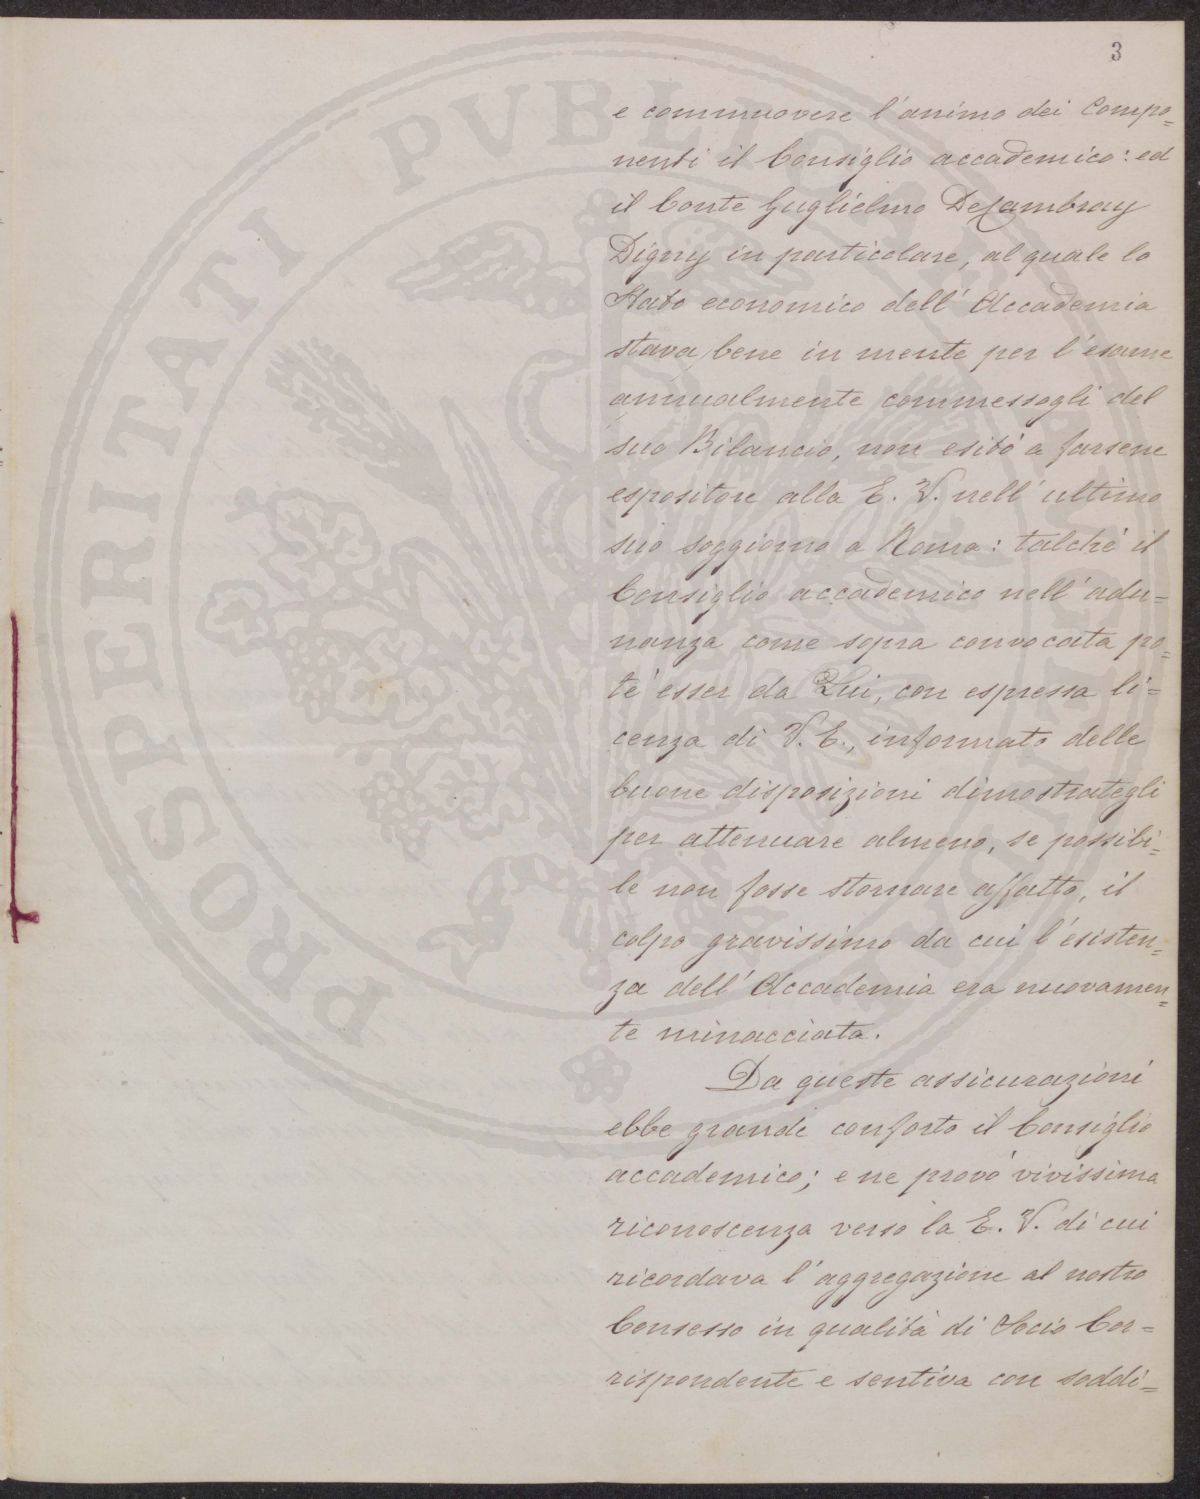 3
e commuovere l'animo dei Compo=
nenti il Consiglio accademico: ed
il Conte Guglielmo DeCambray
Digny in particolare, al quale lo
Stato economico dell'Accademia
stava bene in mente per l'esame
annualmente commessogli del
suo Bilancio, non esitò a farsene
espositore alla E. V. nell'ultimo
suo soggiorno a Roma: talchè il
Consiglio accademico nell'adu=
nanza come sopra convocata po=
tè esser da Lui, con espressa li=
cenza di V. E., informato delle
buone disposizioni dimostrategli
per attenuare almeno, se possibi=
le non fosse stornare affatto, il
colpo gravissimo da cui l'esisten=
za dell'Accademia era nuovamen=
te minacciata.
Da queste assicurazioni
ebbe grande conforto il Consiglio
accademico; e ne provò vivissima
riconoscenza verso la E. V. di cui
ricordava l'aggregazione al nostro
Consesso in qualità di Socio Cor=
rispondente e sentiva con soddi=
PROSPERITATI PVBLICAE